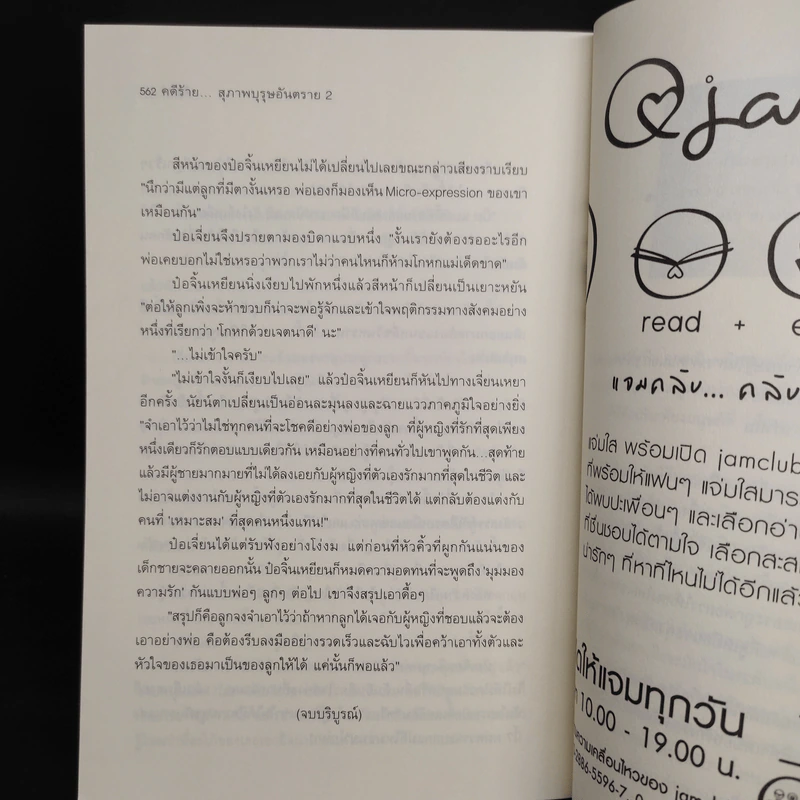 562 คดีร้าย... สุภาพบุรุษอันตราย 2
สีหน้าของป๋อจิ้นเหยียนไม่ได้เปลี่ยนไปเลยขณะกล่าวเสียงราบเรียบ
"นึกว่ามีแต่ลูกที่มีตางั้นเหรอ พ่อเองก็มองเห็น Micro-expression ของเขา
เหมือนกัน"
ป๋อเจี่ยนจึงปรายตามองบิดาแวบหนึ่ง "งั้นเรายังต้องรออะไรอีก
พ่อเคยบอกไม่ใช่เหรอว่าพวกเราไม่ว่าคนไหนก็ห้ามโกหกแม่เด็ดขาด"
ป๋อจิ้นเหยียนนิ่งเงียบไปพักหนึ่งแล้วสีหน้าก็เปลี่ยนเป็นเยาะหยัน
"ต่อให้ลูกเพิ่งจะห้าขวบก็น่าจะพอรู้จักและเข้าใจพฤติกรรมทางสังคมอย่าง
หนึ่งที่เรียกว่า 'โกหกด้วยเจตนาดี' นะ"
"...ไม่เข้าใจครับ"
"ไม่เข้าใจงั้นก็เงียบไปเลย" แล้วป๋อจิ้นเหยียนก็หันไปทางเจี่ยนเหยา
อีกครั้ง นัยน์ตาเปลี่ยนเป็นอ่อนละมุนลงและฉายแววภาคภูมิใจอย่างยิ่ง
"จำเอาไว้ว่าไม่ใช่ทุกคนที่จะโชคดีอย่างพ่อของลูก ที่ผู้หญิงที่รักที่สุดเพียง
หนึ่งเดียวก็รักตอบแบบเดียวกัน เหมือนอย่างที่คนทั่วไปเขาพูดกัน...สุดท้าย
แล้วมีผู้ชายมากมายที่ไม่ได้ลงเอยกับผู้หญิงที่ตัวเองรักมากที่สุดในชีวิต และ
ไม่อาจแต่งงานกับผู้หญิงที่ตัวเองรักมากที่สุดในชีวิตได้ แต่กลับต้องแต่งกับ
คนที่ 'เหมาะสม' ที่สุดคนหนึ่งแทน!"
ป๋อเจี่ยนได้แต่รับฟังอย่างโง่งม แต่ก่อนที่หัวคิ้วที่ผูกกันแน่นของ
เด็กชายจะคลายออกนั้น ป๋อจิ้นเหยียนก็หมดความอดทนที่จะพูดถึง 'มุมมอง
ความรัก' กันแบบพ่อๆ ลูกๆ ต่อไป เขาจึงสรุปเอาดื้อๆ
"สรุปก็คือลูกจงจำเอาไว้ว่าถ้าหากลูกได้เจอกับผู้หญิงที่ชอบแล้วจะต้อง
เอาอย่างพ่อ คือต้องรีบลงมืออย่างรวดเร็วและฉับไวเพื่อคว้าเอาทั้งตัวและ
หัวใจของเธอมาเป็นของลูกให้ได้ แค่นั้นก็พอแล้ว"
(จบบริบูรณ์)
read +
แจมคลับ... คลับ
แจ่มใส พร้อมเปิด jamclub
ที่พร้อมให้แฟนๆ แจ่มใสมาร
ได้พบปะเพื่อนๆ และเลือกอ่า
ที่ชื่นชอบได้ตามใจ เลือกสะส
น่ารักๆ ที่หาที่ไหนไม่ได้อีกแล้
ให้แจมทุกวัน
10.00 - 19.00 น.
ความเคลื่อนไหวของ jam